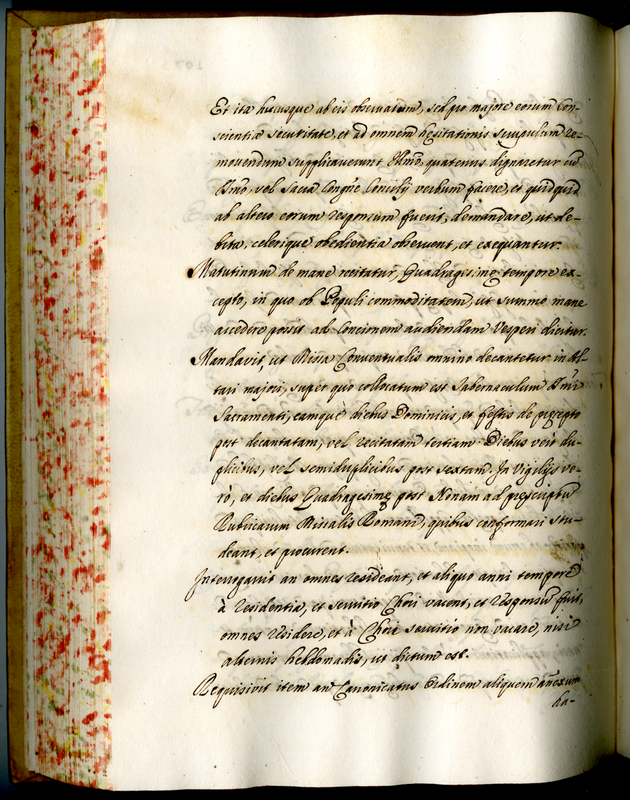 Et ita hucusque ab eis observatum, sed pro majore eorum con-
scientiæ securitate, et ad omnem hesitationis scrupulum re-
movendum supplicaverunt Illmo, quatenus dignaretur cu
Dno, vel Sacra Congne Concilij verbum facere, et quidquid
ab altero eorum responsum fuerit, demandare, ut de-
bita, celerique obedientia observent, et exequantur.
Matutinum de mane recitatur, Quadragesimę tempore ex-
cepto, in quo ob Populi commoditatem, ut summo mane
accedere possit ad Concionem audiendam Vesperi dicitur.
Mandavit, ut Missa Conventualis omnino decantetur in Al-
tari majori, super quo collocatum est Tabernaculum Smi
Sacramenti, eamque diebus Dominicis, et festis de pręcepto
post decantatam, vel recitatam tertiam. Diebus verò du-
plicibus, vel semiduplicibus post sextam. In Vigilijs ve-
rò, et diebus Quadragesimę post Nonam ad pręscriptu
Rubricarum Missalis Romani, quibus conformari stu-
deant, et procurent.
Interrogavit an omnes resideant, et aliquo anni tempore
à residentia, et servitio Chori vacent, et responsu fuit,
omnes residere, et à Chori servitio non vacare, nisi
alternis hebdomadis, ut dictum est.
Requisivit item an Canonicatus Ordinem aliquem añexum
ha-